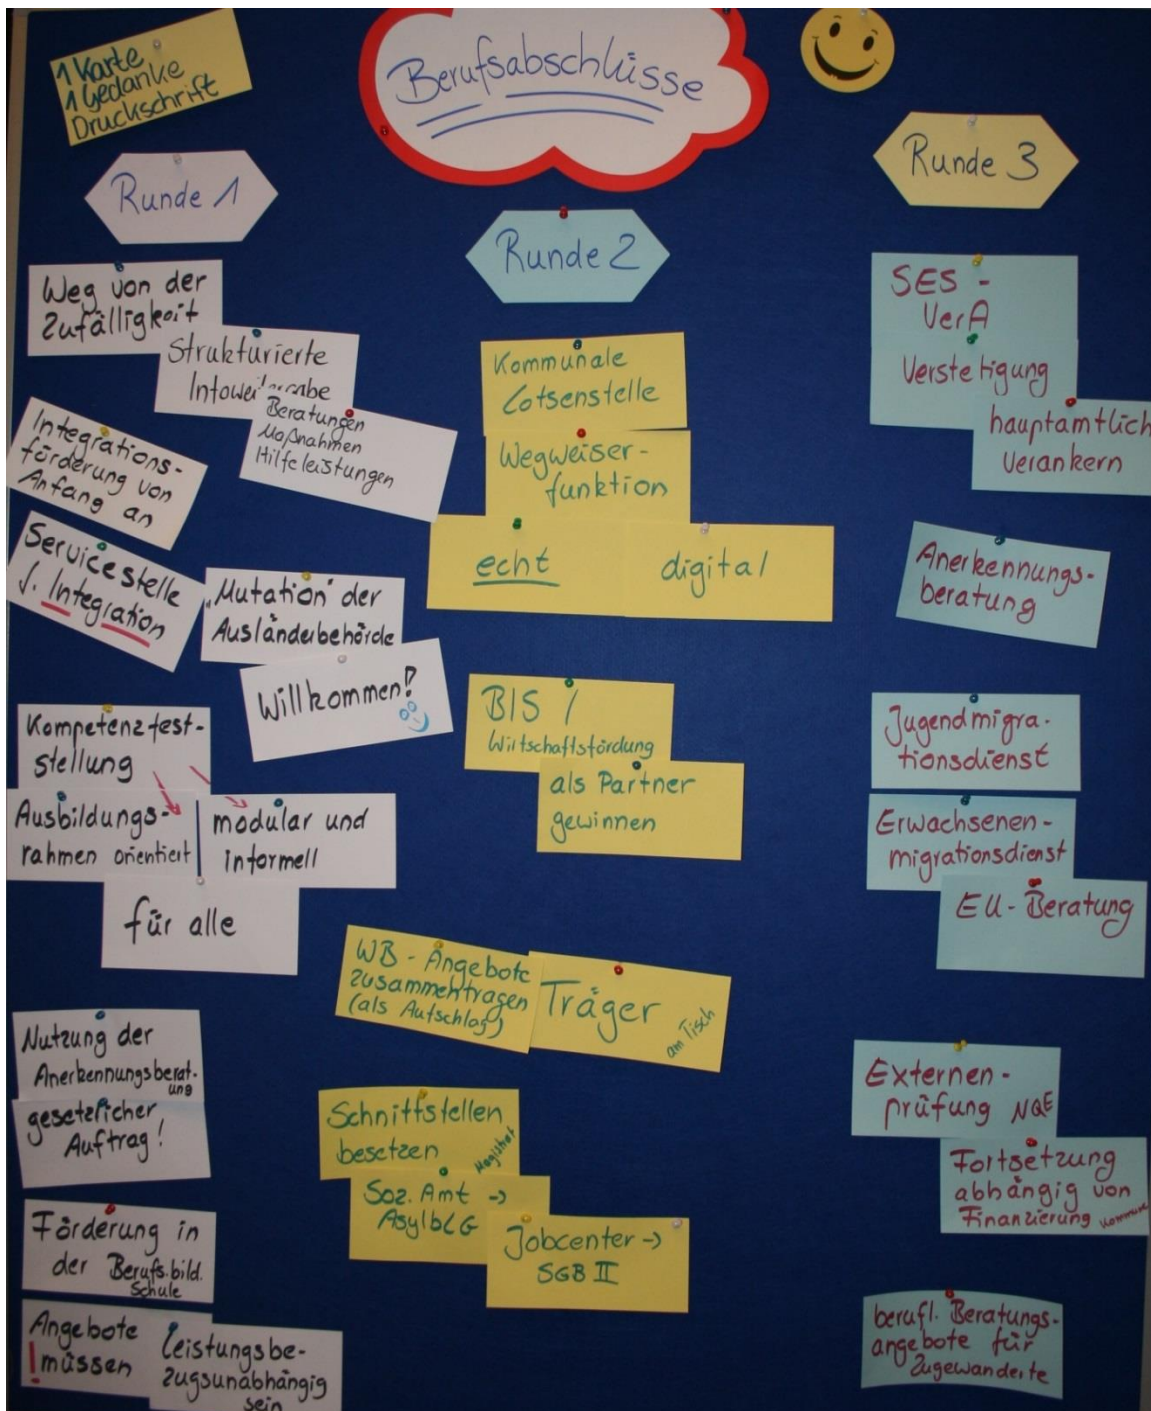 1 Karte
1 Gedanke
Druckschrift
Berufsabschlüsse
Runde 1
Weg von der
Zufälligkeit
Strukturierte
Infoweitergabe
Beratungen
Maßnahmen
Hilfeleistungen
Integrations-
förderung von
Anfang an
Servicestelle
f. Integration
"Mutation" der
Ausländerbehörde
Willkommen!
Kompetenzfest-
stellung
Ausbildungs-
rahmen orientiert
modular und
informell
für alle
Nutzung der
Anerkennungsberat-
ung
gesetzlicher
Auftrag!
Förderung in
der Berufsbild.
Schule
Angebote
! müssen
Leistungsbe-
zugsunabhängig
sein
Runde 2
Kommunale
Lotsenstelle
Wegweiser-
funktion
echt
digital
BIS /
Wirtschaftsfördung
als Partner
gewinnen
WB - Angebote
zusammentragen
(als Aufschlag)
Träger
am Tisch
Schnittstellen
besetzen
Magistrat
Soz. Amt ->
AsylbLG
Jobcenter ->
SGB II
Runde 3
SES -
VerA
Verstetigung
hauptamtlich
verankern
Anerkennungs-
beratung
Jugendmigra-
tionsdienst
Erwachsenen-
migrationsdienst
EU - Beratung
Externen-
prüfung NQE
Fortsetzung
abhängig von
Finanzierung Kommune
berufl. Beratungs-
angebote für
Zugewanderte